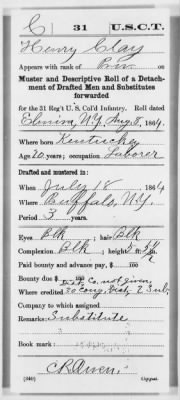 C 31 U.S.C.T.
Henry Clay
Appears with rank of Priv.
Muster and Descriptive Roll of a Detach-
ment of Drafted Men and Substitutes
forwarded
for the 31 Reg't U. S. Col'd Infantry. Roll dated
Elmira, N.Y. Aug. 8, 1864.
Where born Kentucky
Age 20 years; occupation Laborer
Drafted and mustered in:
When July 18, 1864
Where Buffalo, N.Y.
Period 3 years.
Eyes Blk; hair Blk
Complexion Blk; height 5 ft.
Paid bounty and advance pay, $ 100
Bounty due $ 100
Co. not given,
Where credited 30 Cong. Dist.
Company to which assigned
Remarks: Substitute
Book mark:
(340) Copyist.